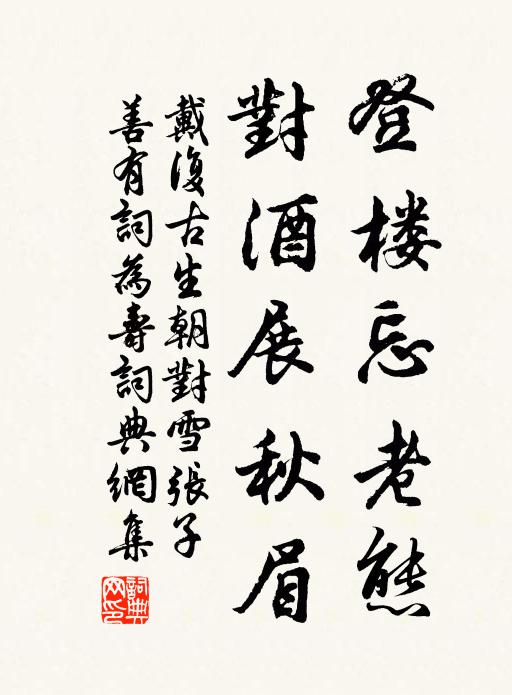 登楼忘老態
對酒展秋眉
戴復古生朝對雪張子
善有詞為壽詞典網集
詞典网印